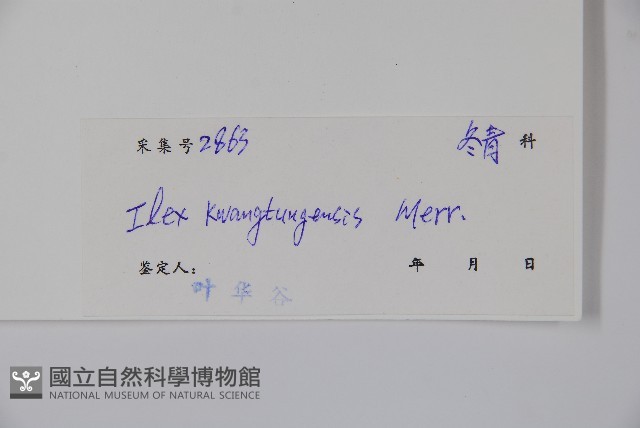 采集号 2863 冬青 科
Ilex Kwangtungensis Merr.
鉴定人： 年 月 日
叶华谷
國立自然科學博物館
NATIONAL MUSEUM OF NATURAL SCIENCE